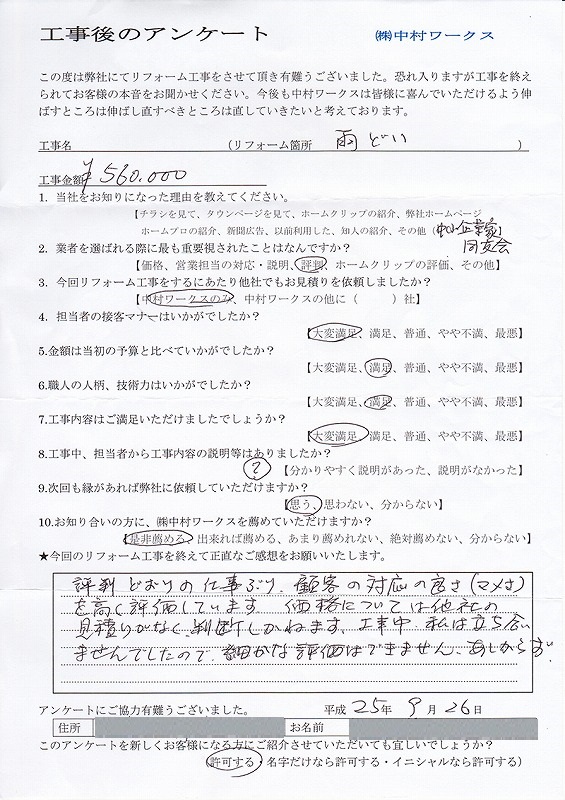 工事後のアンケート ㈱中村ワークス
この度は弊社にてリフォーム工事をさせて頂き有難うございました。恐れ入りますが工事を終え
られてお客様の本音をお聞かせください。今後も中村ワークスは皆様に喜んでいただけるよう伸
ばすところは伸ばし直すべきところは直していきたいと考えております。
工事名 (リフォーム箇所 雨どい )
工事金額 ¥560.000
1. 当社をお知りになった理由を教えてください。
【チラシを見て、タウンページを見て、ホームクリップの紹介、弊社ホームページ
ホームプロの紹介、新聞広告、以前利用した、知人の紹介、その他(中小企業家
同友会
2. 業者を選ばれる際に最も重要視されたことはなんですか?
【価格、営業担当の対応・説明、評判、ホームクリップの評価、その他】
3. 今回リフォーム工事をするにあたり他社でもお見積りを依頼しましたか?
【中村ワークスのみ、中村ワークスの他に( )社】
4. 担当者の接客マナーはいかがでしたか?
【大変満足、満足、普通、やや不満、最悪】
5.金額は当初の予算と比べていかがでしたか?
【大変満足、満足、普通、やや不満、最悪】
6.職人の人柄、技術力はいかがでしたか?
【大変満足、満足、普通、やや不満、最悪】
7.工事内容はご満足いただけましたでしょうか?
【大変満足、満足、普通、やや不満、最悪】
8.工事中、担当者から工事内容の説明等はありましたか?
? 【分かりやすく説明があった、説明がなかった】
9.次回も縁があれば弊社に依頼していただけますか?
【思う、思わない、分からない】
10.お知り合いの方に、㈱中村ワークスを薦めていただけますか?
【是非薦める、出来れば薦める、あまり薦めれない、絶対薦めない、分からない】
★今回のリフォーム工事を終えて正直なご感想をお願いいたします。
評判どおりの仕事ぶり、顧客の対応の良さ(マメさ)
を高く評価しています 価格については他社の
見積りがなく判断しかねます、工事中、私は立ち会い
ませんでしたので、細かな評価はできません、あしからず.
アンケートにご協力有難うございました。 平成 25年 9月 26日
住所 お名前
このアンケートを新しくお客様になる方にご紹介させていただいても宜しいでしょうか?
(許可する・名字だけなら許可する・イニシャルなら許可する)